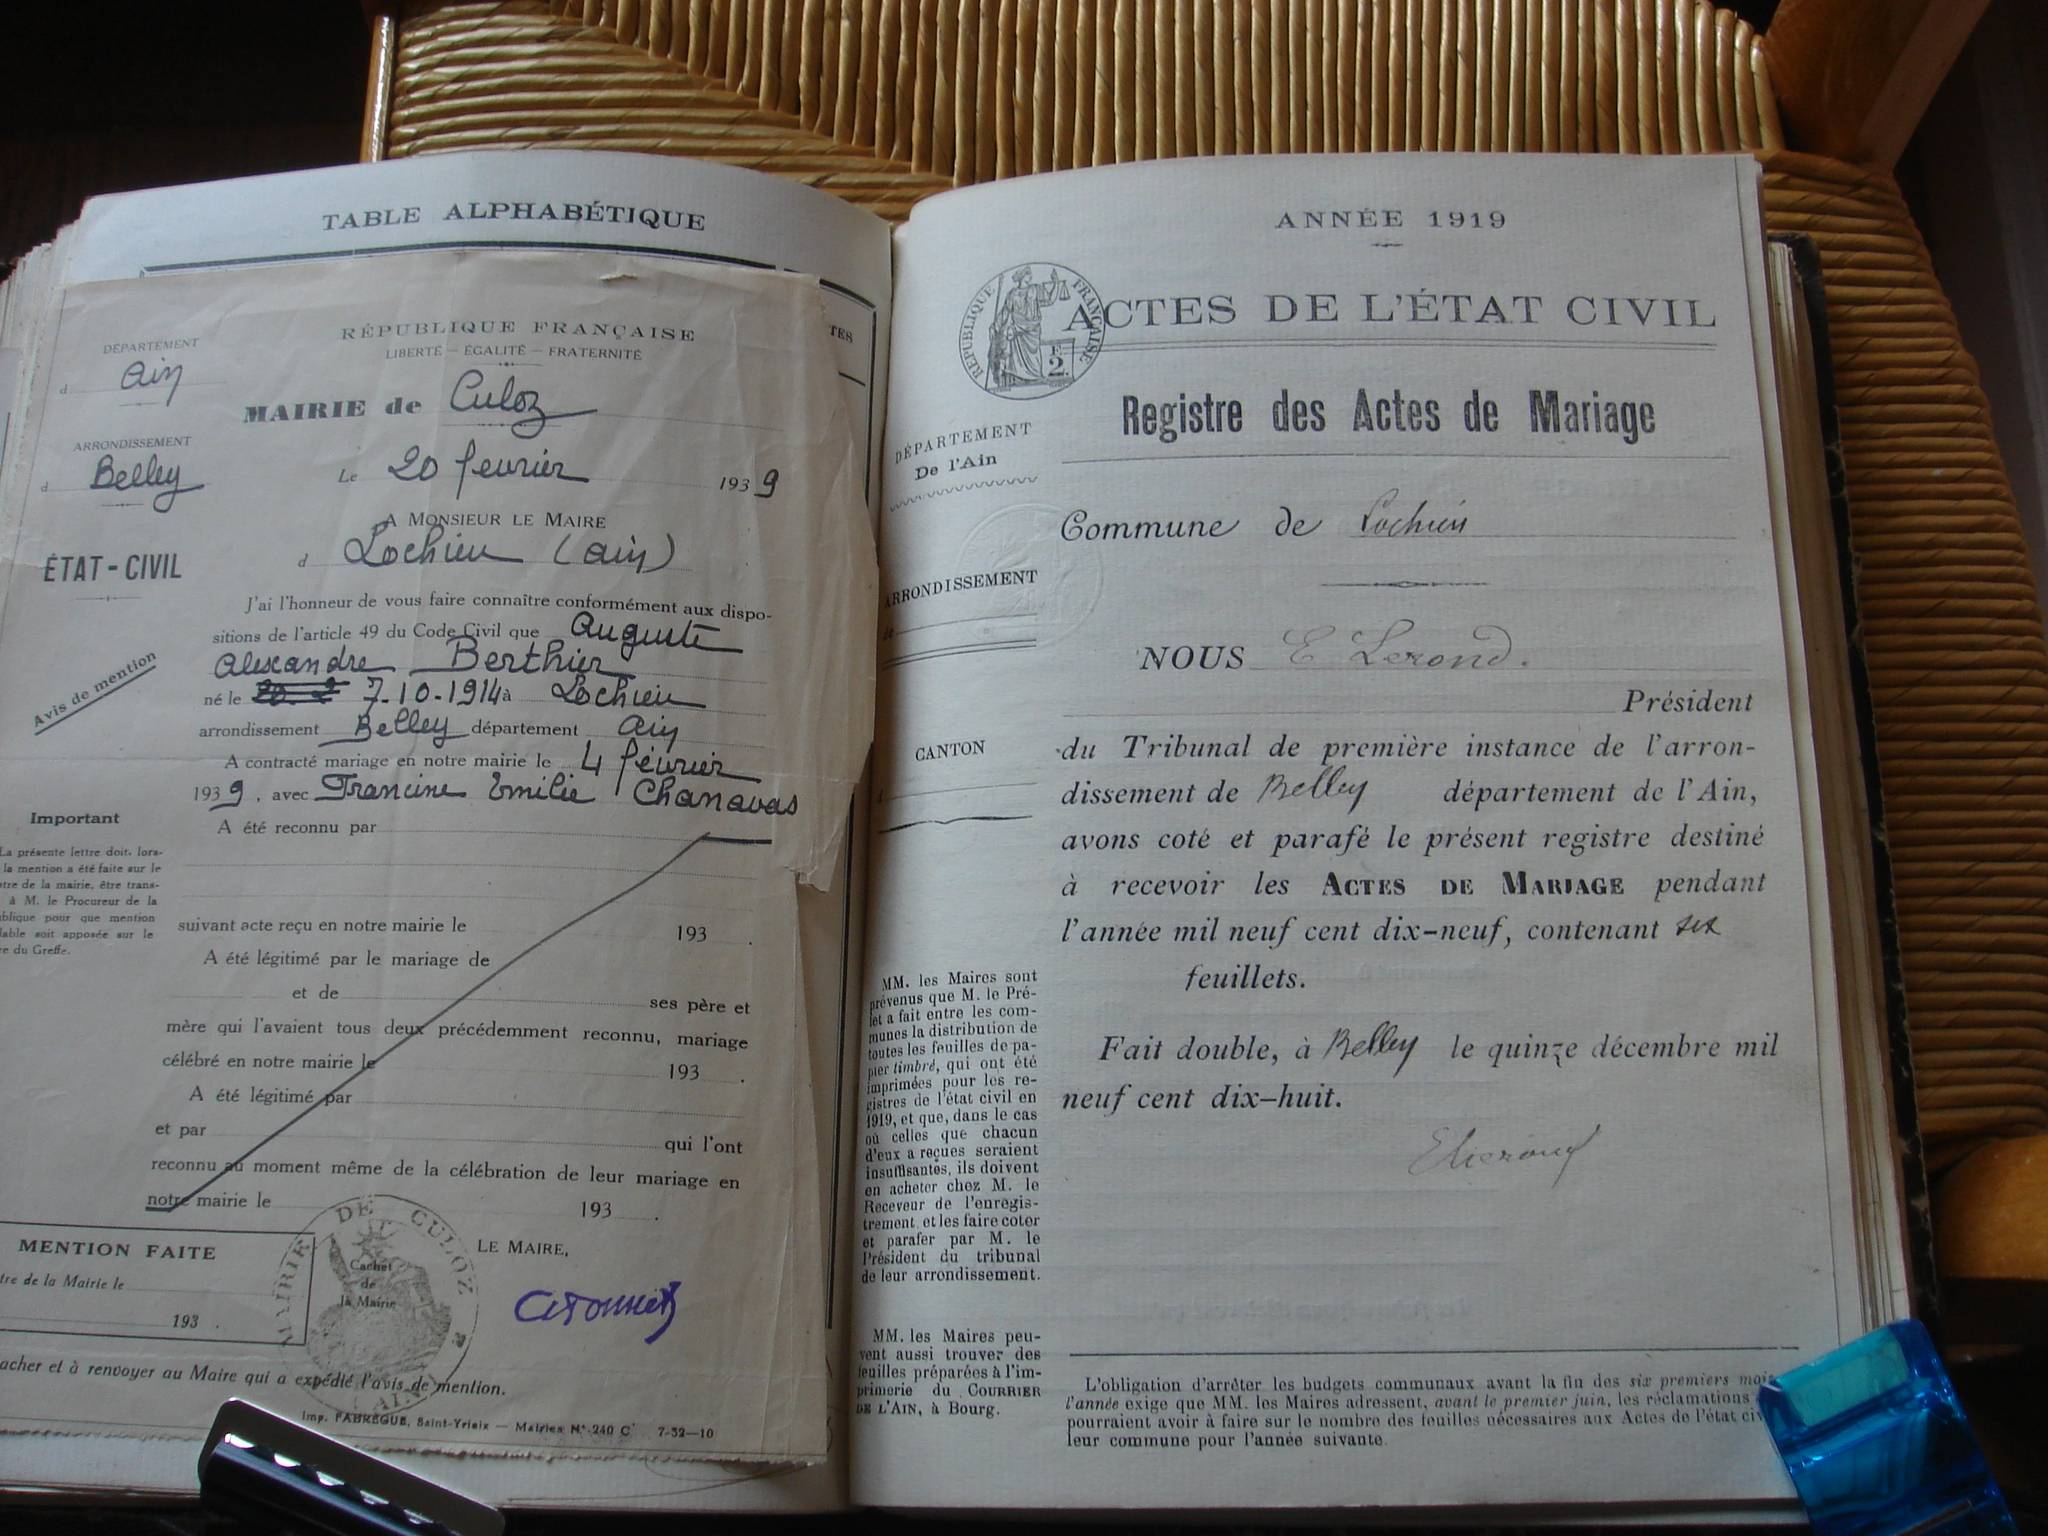 TABLE ALPHABÉTIQUE
TES
DÉPARTEMENT
d Ain
ARRONDISSEMENT
d Belley
ÉTAT-CIVIL
Avis de mention
Important
La présente lettre doit, lors-
la mention a été faite sur le
tre de la mairie, être trans-
à M. le Procureur de la
ublique pour que mention
lable soit apposée sur le
re du Greffe.
RÉPUBLIQUE FRANÇAISE
LIBERTÉ — ÉGALITÉ — FRATERNITÉ
MAIRIE de Culoz
Le 20 fevrier 1939
A MONSIEUR LE MAIRE
d Lochieu (Ain)
J'ai l'honneur de vous faire connaître conformément aux dispo-
sitions de l'article 49 du Code Civil que Auguste
Alexandre Berthier
né le 7-10-1914 à Lochieu
arrondissement Belley département Ain
A contracté mariage en notre mairie le 4 février
1939, avec Francine Emilie Chanavas
A été reconnu par
suivant acte reçu en notre mairie le 193 .
A été légitimé par le mariage de
et de ses père et
mère qui l'avaient tous deux précédemment reconnu, mariage
célébré en notre mairie le 193 .
A été légitimé par
et par qui l'ont
reconnu au moment même de la célébration de leur mariage en
notre mairie le 193 .
MENTION FAITE
tre de la Mairie le
193 .
MAIRIE DE CULOZ
Cachet
de
la Mairie
AIN
LE MAIRE,
acher et à renvoyer au Maire qui a expédié l'avis de mention.
Imp. FABRÈGUE, Saint-Yrieix — Mairies N° 240 C 7-32—10
ANNÉE 1919
RÉPUBLIQUE FRANÇAISE
F.
2.
ACTES DE L'ÉTAT CIVIL
Registre des Actes de Mariage
DÉPARTEMENT
De l'Ain
ARRONDISSEMENT
de
CANTON
d
Commune de Lochieu
NOUS E Lerond.
Président
du Tribunal de première instance de l'arron-
dissement de Belley département de l'Ain,
avons coté et parafé le présent registre destiné
à recevoir les ACTES DE MARIAGE pendant
l'année mil neuf cent dix-neuf, contenant six
feuillets.
Fait double, à Belley le quinze décembre mil
neuf cent dix-huit.
E Lerond
MM. les Maires sont
prévenus que M. le Pré-
fet a fait entre les com-
munes la distribution de
toutes les feuilles de pa-
pier timbré, qui ont été
imprimées pour les re-
gistres de l'état civil en
1919, et que, dans le cas
où celles que chacun
d'eux a reçues seraient
insuffisantes, ils doivent
en acheter chez M. le
Receveur de l'enregis-
trement, et les faire coter
et parafer par M. le
Président du tribunal
de leur arrondissement.
MM. les Maires peu-
vent aussi trouver des
feuilles préparées à l'im-
primerie du COURRIER
DE L'AIN, à Bourg.
L'obligation d'arrêter les budgets communaux avant la fin des six premiers mois
l'année exige que MM. les Maires adressent, avant le premier juin, les réclamations
pourraient avoir à faire sur le nombre des feuilles nécessaires aux Actes de l'état civ
leur commune pour l'année suivante.